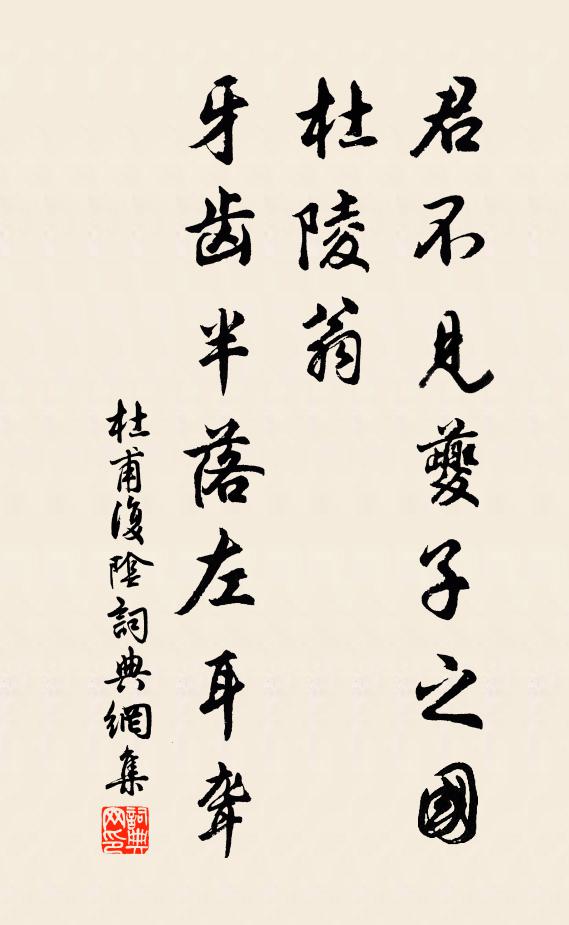 君不見夔子之國
杜陵翁
牙齿半落左耳聋
杜甫復陰詞典網集
詞典網印